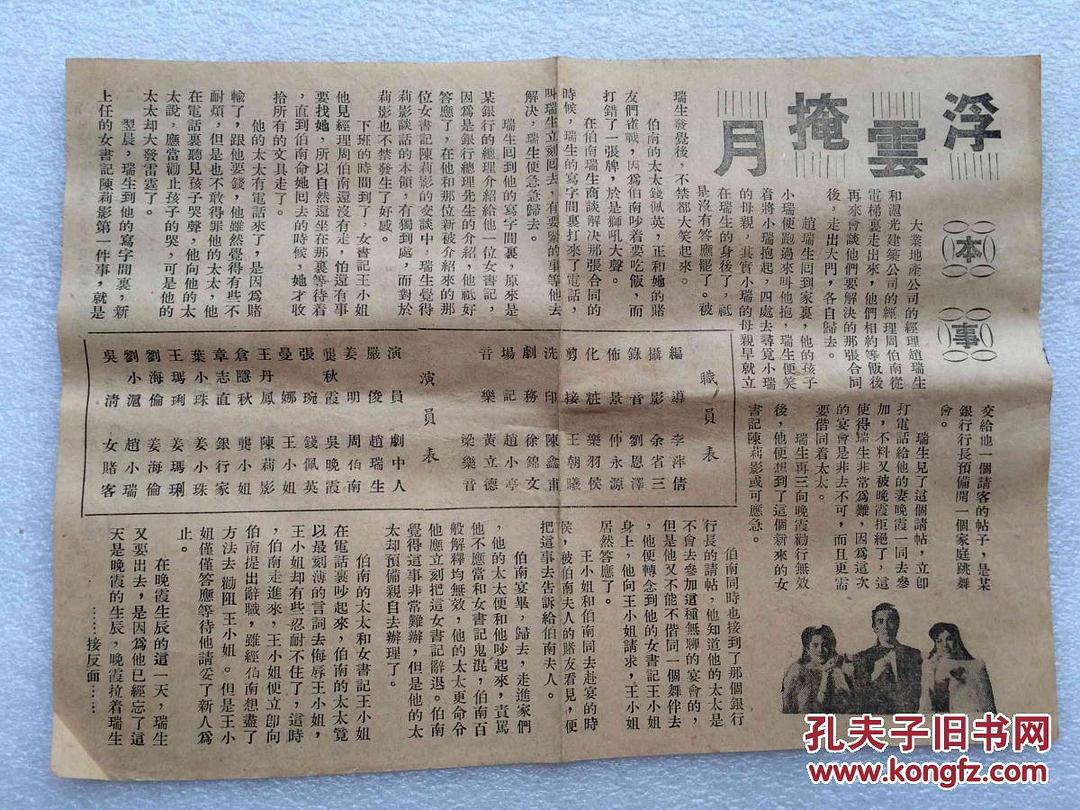 浮雲掩月
(本事)
大業地產公司的經理趙瑞生
和滬光建築公司的經理周伯南從
電梯裏走出來,他們相約等飯後
再來會談他們要解決的那張合同
後,走出大門,各自歸去。
趙瑞生回到家裏,他的孩子
小瑞便跑過來叫他抱,瑞生便笑
着將小瑞抱起,四處去尋覓小瑞
的母親,其實小瑞的母親早就立
在瑞生的身後了,祗
是沒有答應罷了。被
瑞生發覺後,不禁都大笑起來。
伯南的太太錢佩英,正和她的賭
友們雀戰,因爲伯南吵着要吃飯,而
打錯了一張牌,於是獅吼大聲。
在伯南瑞生商談解決那張合同的
時候,瑞生的寫字間裏打來了電話,
叫瑞生立刻回去,有要緊的事等他去
解決,瑞生便急急歸去。
瑞生回到他的寫字間裏,原來是
某銀行的總理介紹給他一位女書記,
因爲是銀行總理先生的介紹,他祗好
答應了,在他和那位新被介紹來的那
位女書記陳莉影的交談中,瑞生覺得
莉影談話的本領,有獨到處,而對於
莉影也不禁發生了好感。
下班的時間到了,女書記王小姐
他見經理周伯南還沒有走,怕還有事
要找她的,所以自然還坐在那裏等待着
,直到伯南命她回去的時候,她才收
拾所有的文具走了。
他的太太有電話來了,是因爲賭
輸了,跟他要錢,他雖然覺得有些不
耐煩,但是也不敢得罪他的太太,他
在電話裏聽見孩子哭聲,他向他的太
太說,應當勸止孩子的哭,可是他的
太太却大發雷霆了。
翌晨,瑞生到他的寫字間裏,新
上任的女書記陳莉影第一件事,就是
職員表
編導 李萍倩
攝影 余省三
錄音 劉恩澤
佈景 仲永源
化粧 樂羽侯
剪接 王朝曦
洗印 陳鑫甫
劇務 徐錦文
場記 趙小亭
音樂 黃立德
梁樂音
演員表
演員 劇中人
嚴俊 趙瑞生
姜明 周伯南
龔秋霞 吳晚霞
張琬 錢佩英
曼娜 王小姐
王丹鳳 陳莉影
倉隱秋 龔小姐
章志直 銀行家
葉小珠 姜小珠
王瑪琍 姜瑪琍
劉海倫 姜海倫
劉小滬 趙小瑞
吳清 女賭客
交給他一個請客的帖子,是某
銀行行長預備開一個家庭跳舞
會。
瑞生見了這個請帖,立卽
打電話給他的妻晚霞一同去參
加,不料又被晚霞拒絕了,這
使得瑞生非常爲難,因爲這次
的宴會是非去不可,而且更需
要偕同着太太。
瑞生再三向晚霞勸行無效
後,他便想到了這個新來的女
書記陳莉影或可應急。
伯南同時也接到了那個銀行
行長的請帖,他知道他的太太是
不會去參加這種無聊的宴會的,
但是他又不能不偕同一個舞伴去
,他便轉念到他的女書記王小姐
身上,他向王小姐請求,王小姐
居然答應了。
王小姐和伯南同去赴宴的時
侯,被伯南夫人的賭友看見,便
把這事去告訴給伯南夫人。
伯南宴畢,歸去,走進家門
,他的太太便和他吵起來,責罵
他不應當和女書記鬼混,伯南百
般解釋均無效,他的太太更命令
他應立刻把這女書記辭退。伯南
覺得這事非常難辦,但是他的太
太却預備親自去辦理了。
伯南的太太和女書記王小姐
在電話裏吵起來,伯南的太太竟
以最刻薄的言詞去侮辱王小姐,
王小姐却有些忍耐不住了,這時
伯南走進來,王小姐便立卽向
伯南提出辭職,雖經伯南想盡了
方法去 勸阻 王小姐。但是王小
姐僅僅答應等待他請妥了新人爲
止。
在晚霞生辰的這一天,瑞生
又要出去,是因爲他已經忘了這
天是晚霞的生辰,晚霞拉着瑞生
……接反面……
孔夫子旧书网
www.kongfz.com